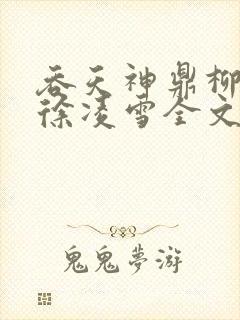 吞天神鼎柳
徐凌雪全文
鬼鬼夢游